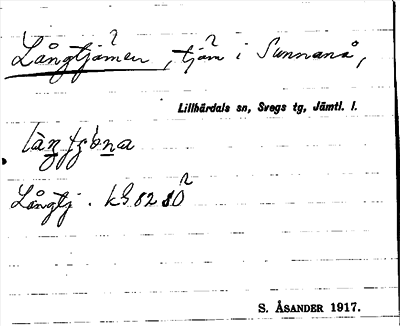 Långtjärnen, tjärn i Sunnanå,
Lillhärdals sn, Svegs tg, Jämtl. l.
Långtj. kG. 82 SO
S. ÅSANDER 1917.